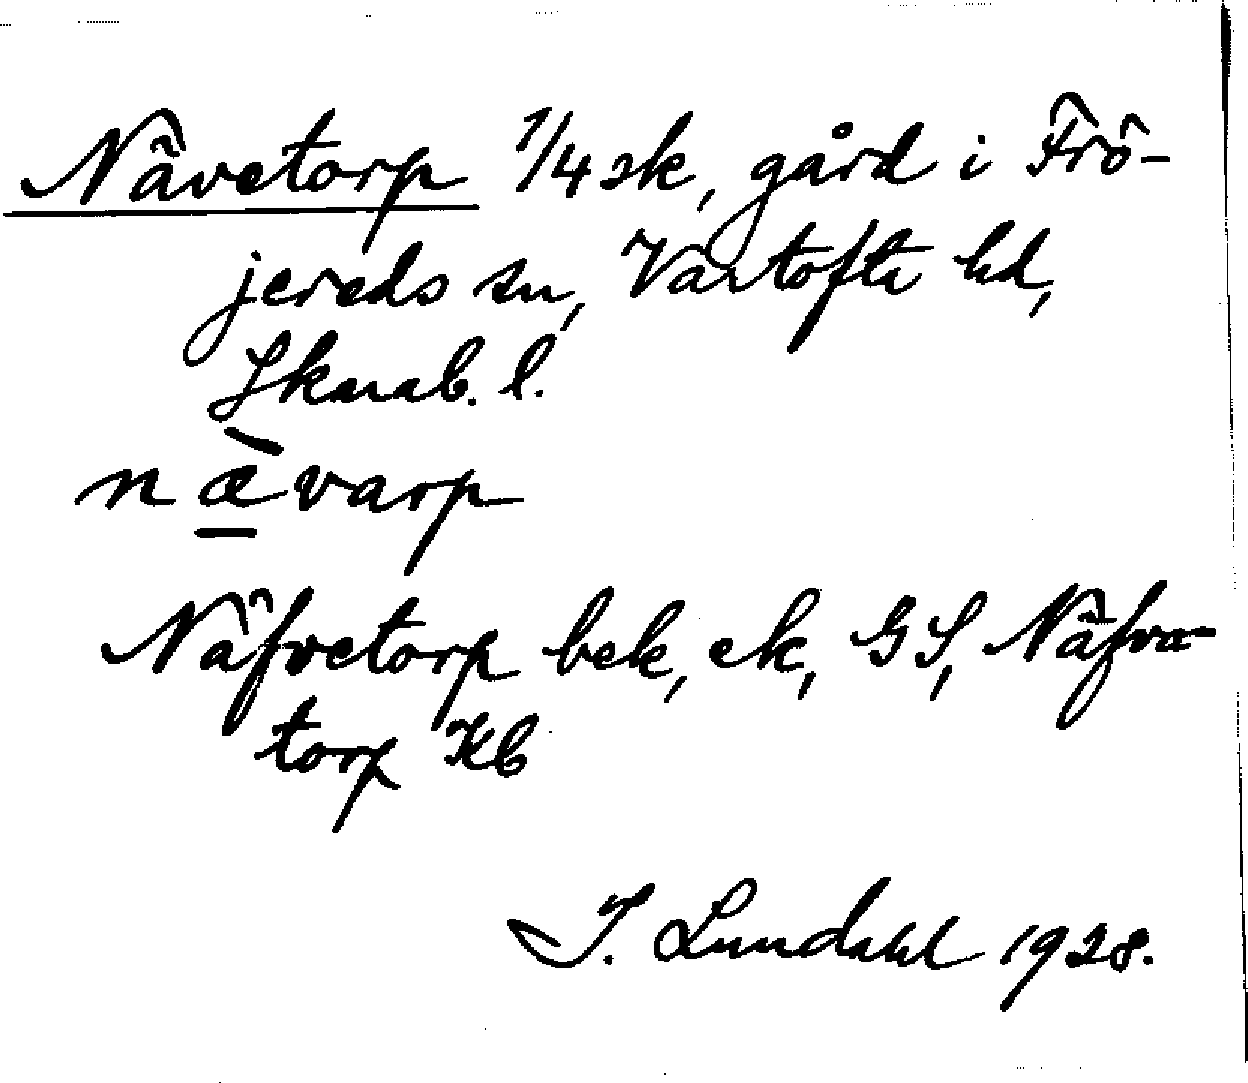 Nävetorp 1/4 sk, gård i Frö-
jereds sn, Vartofta hd,
Skarab. l.
næ̠̀varp
Näfvetorp bek, ek, GS, Näfva-
torp Kb
I. Lundahl 1928.